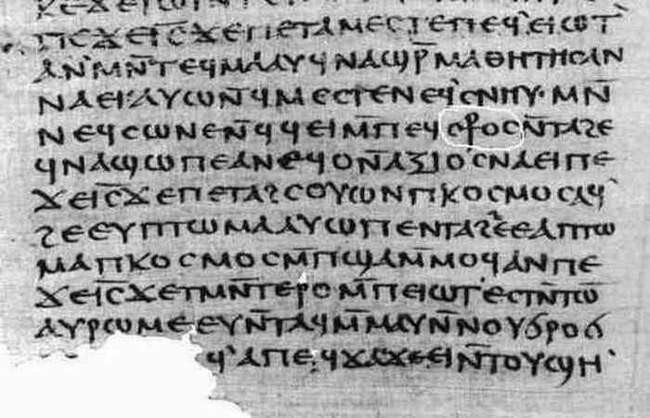 ⲡⲉϫⲉⲓ̅ⲥ̅ϫⲉⲡⲉⲧⲁⲙⲉⲥⲧⲉⲡⲉϥ`ⲉⲓⲱⲧ`
ⲁⲛ`ⲙⲛ̅ⲧⲉϥⲙⲁⲁⲩϥⲛⲁϣⲣ̅ⲙⲁⲑⲏⲧⲏⲥⲁⲛ
ⲛⲁⲉⲓ`ⲁⲩⲱⲛ̅ϥⲙⲉⲥⲧⲉⲛⲉϥ`ⲥⲛⲏⲩ`ⲙⲛ̅
ⲛⲉϥⲥⲱⲛⲉⲛ̅ϥϥⲉⲓⲙ̅ⲡⲉϥⲥ⳨ⲟⲥⲛ̅ⲧⲁϩⲉ
ϥⲛⲁϣⲱⲡⲉⲁⲛⲉϥⲟⲛ̅ⲁⲝⲓⲟⲥⲛⲁⲉⲓⲡⲉ
ϫⲉⲓ̅ⲥ̅ϫⲉⲡⲉⲧⲁϩⲥⲟⲩⲱⲛⲡⲕⲟⲥⲙⲟⲥⲁϥ`
ϩⲉⲉⲩⲡⲧⲱⲙⲁⲁⲩⲱⲡⲉⲛⲧⲁϩϩⲉⲉⲁⲡⲧⲱ
ⲙⲁⲡⲕⲟⲥⲙⲟⲥⲙ̅ⲡϣⲁⲙ̅ⲙⲟϥⲁⲛⲡⲉ
ϫⲉⲓ̅ⲥ̅ϫⲉⲧⲙⲛ̅ⲧⲉⲣⲟⲙ̅ⲡⲉⲓⲱⲧ`ⲉⲥⲧⲛ̅ⲧⲱ̅
ⲁⲩⲣⲱⲙⲉⲉⲩⲛ̅ⲧⲁϥⲙ̅ⲙⲁⲩⲛ̅ⲛⲟⲩϭⲣⲟϭ
ϥ`ⲁⲡⲉϥϫⲁϫⲉⲉⲓⲛ̅ⲧⲟⲩϣⲏ`